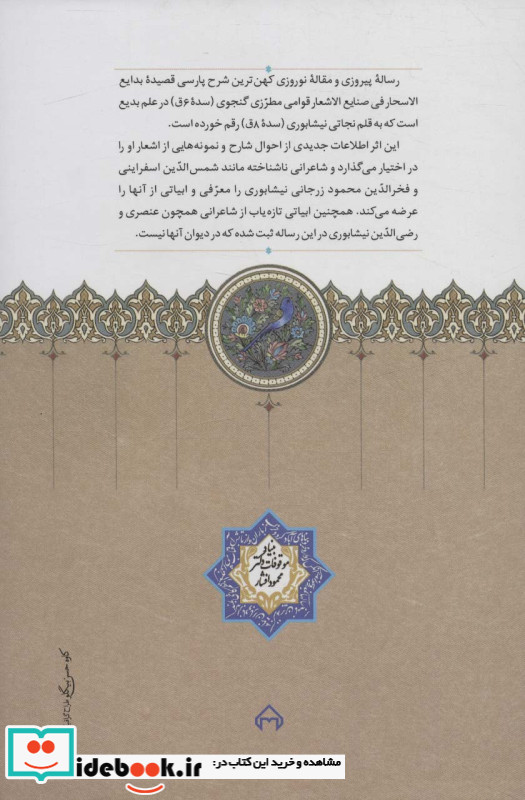 رسالهٔ پیروزی و مقالهٔ نوروزی کهن‌ترین شرح پارسی قصیدهٔ بدایع
الاسحار فی صنایع الاشعار قوامی مطرّزی گنجوی (سدهٔ ۶ق) در علم بدیع
است که به قلم نجاتی نیشابوری (سدهٔ ۸ق) رقم خورده است.
این اثر اطلاعات جدیدی از احوال شارح و نمونه‌هایی از اشعار او را
در اختیار می‌گذارد و شاعرانی ناشناخته مانند شمس‌الدّین اسفراینی
و فخرالدّین محمود زرجانی نیشابوری را معرّفی و ابیاتی از آنها را
عرضه می‌کند. همچنین ابیاتی تازه‌یاب از شاعرانی همچون عنصری و
رضی‌الدّین نیشابوری در این رساله ثبت شده که در دیوان آنها نیست.
بنیاد
موقوفات دکتر
محمود افشار
مشاهده و خرید این کتاب در:
idebook.ir